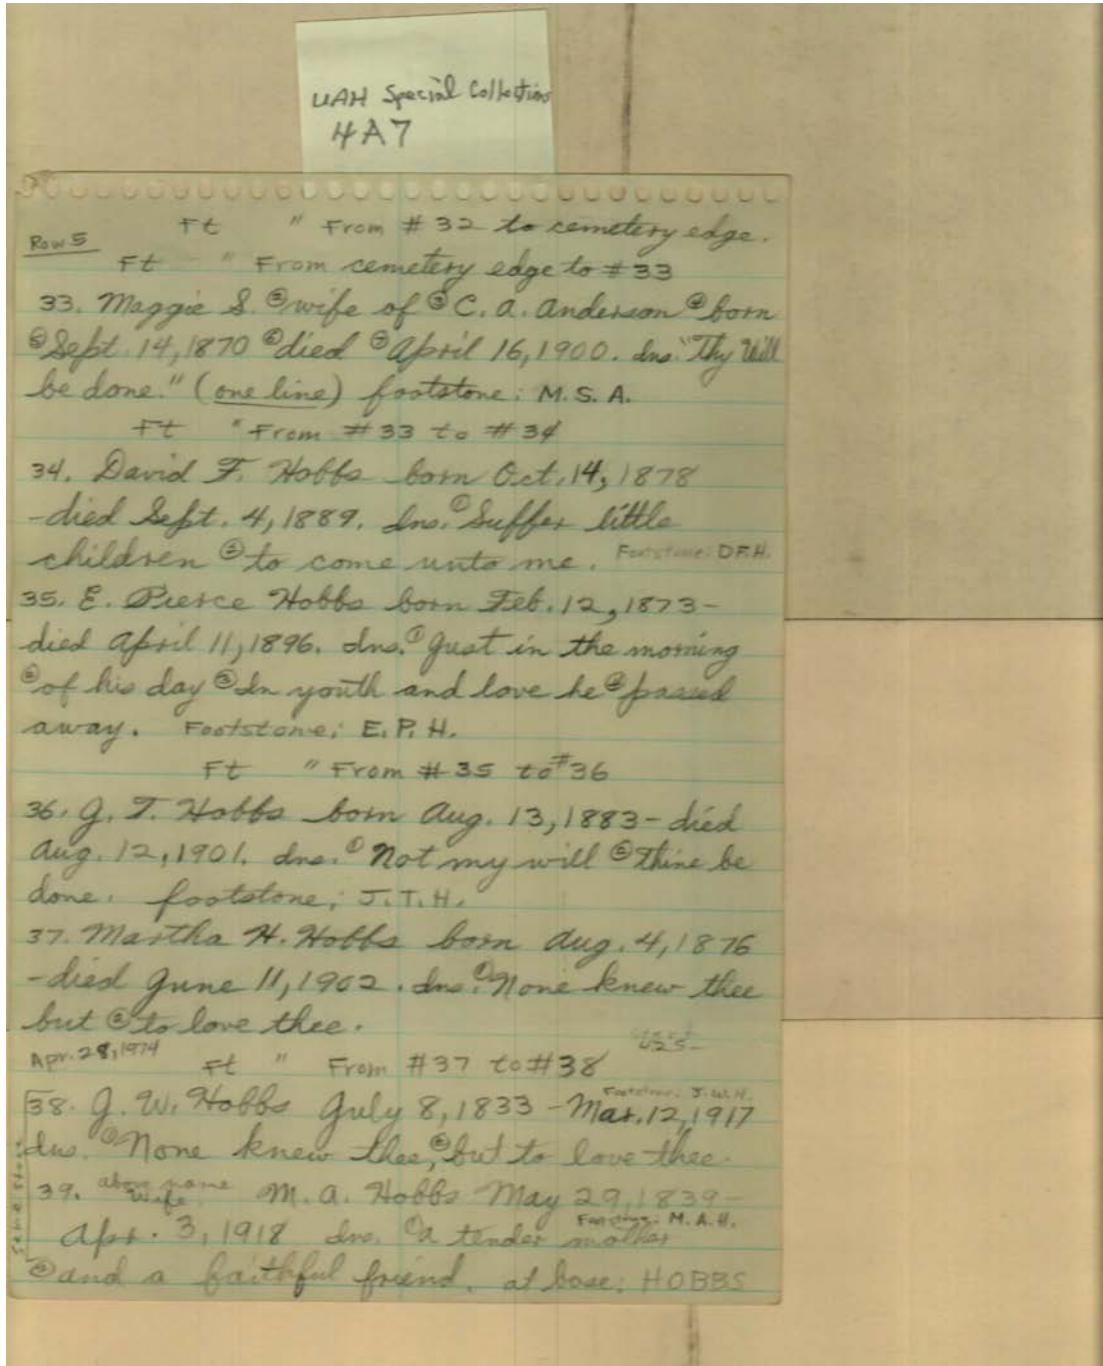 UAH Special Collections
4A7
Ft " From # 32 to cemetery edge.
Row 5
Ft " From cemetery edge to #33
33. Maggie S. ②wife of ③C. A. Anderson ④born
⑤Sept. 14, 1870 ⑥died ⑦April 16, 1900. Ins. "Thy Will
be done." (one line) footstone: M.S.A.
Ft " From #33 to #34
34. David F. Hobbs born Oct. 14, 1878
-died Sept. 4, 1889. Ins. ①Suffer little
children ②to come unto me. Footstone: D.F.H.
35. E. Pierce Hobbs born Feb. 12, 1873-
died April 11, 1896. Ins. ①Just in the morning
②of his day ③In youth and love he ④passed
away. Footstone: E.P.H.
Ft " From #35 to #36
36. J. T. Hobbs born Aug. 13, 1883- died
Aug. 12, 1901. Ins. ①Not my will ②Thine be
done. footstone; J.T.H.
37. Martha H. Hobbs born Aug. 4, 1876
-died June 11, 1902. Ins. ①None knew thee
but ②to love thee.
Apr. 28, 1974 Ft " From #37 to #38
Footstone: J.W.H.
38. J. W. Hobbs July 8, 1833 - Mar. 12, 1917
Ins. ①None knew thee, ②but to love thee.
39. above name wife M. A. Hobbs May 29, 1839-
Footstone: M.A.H.
Apr. 3, 1918 Ins. ①A tender mother
②and a faithful friend. at base: HOBBS
Same stone